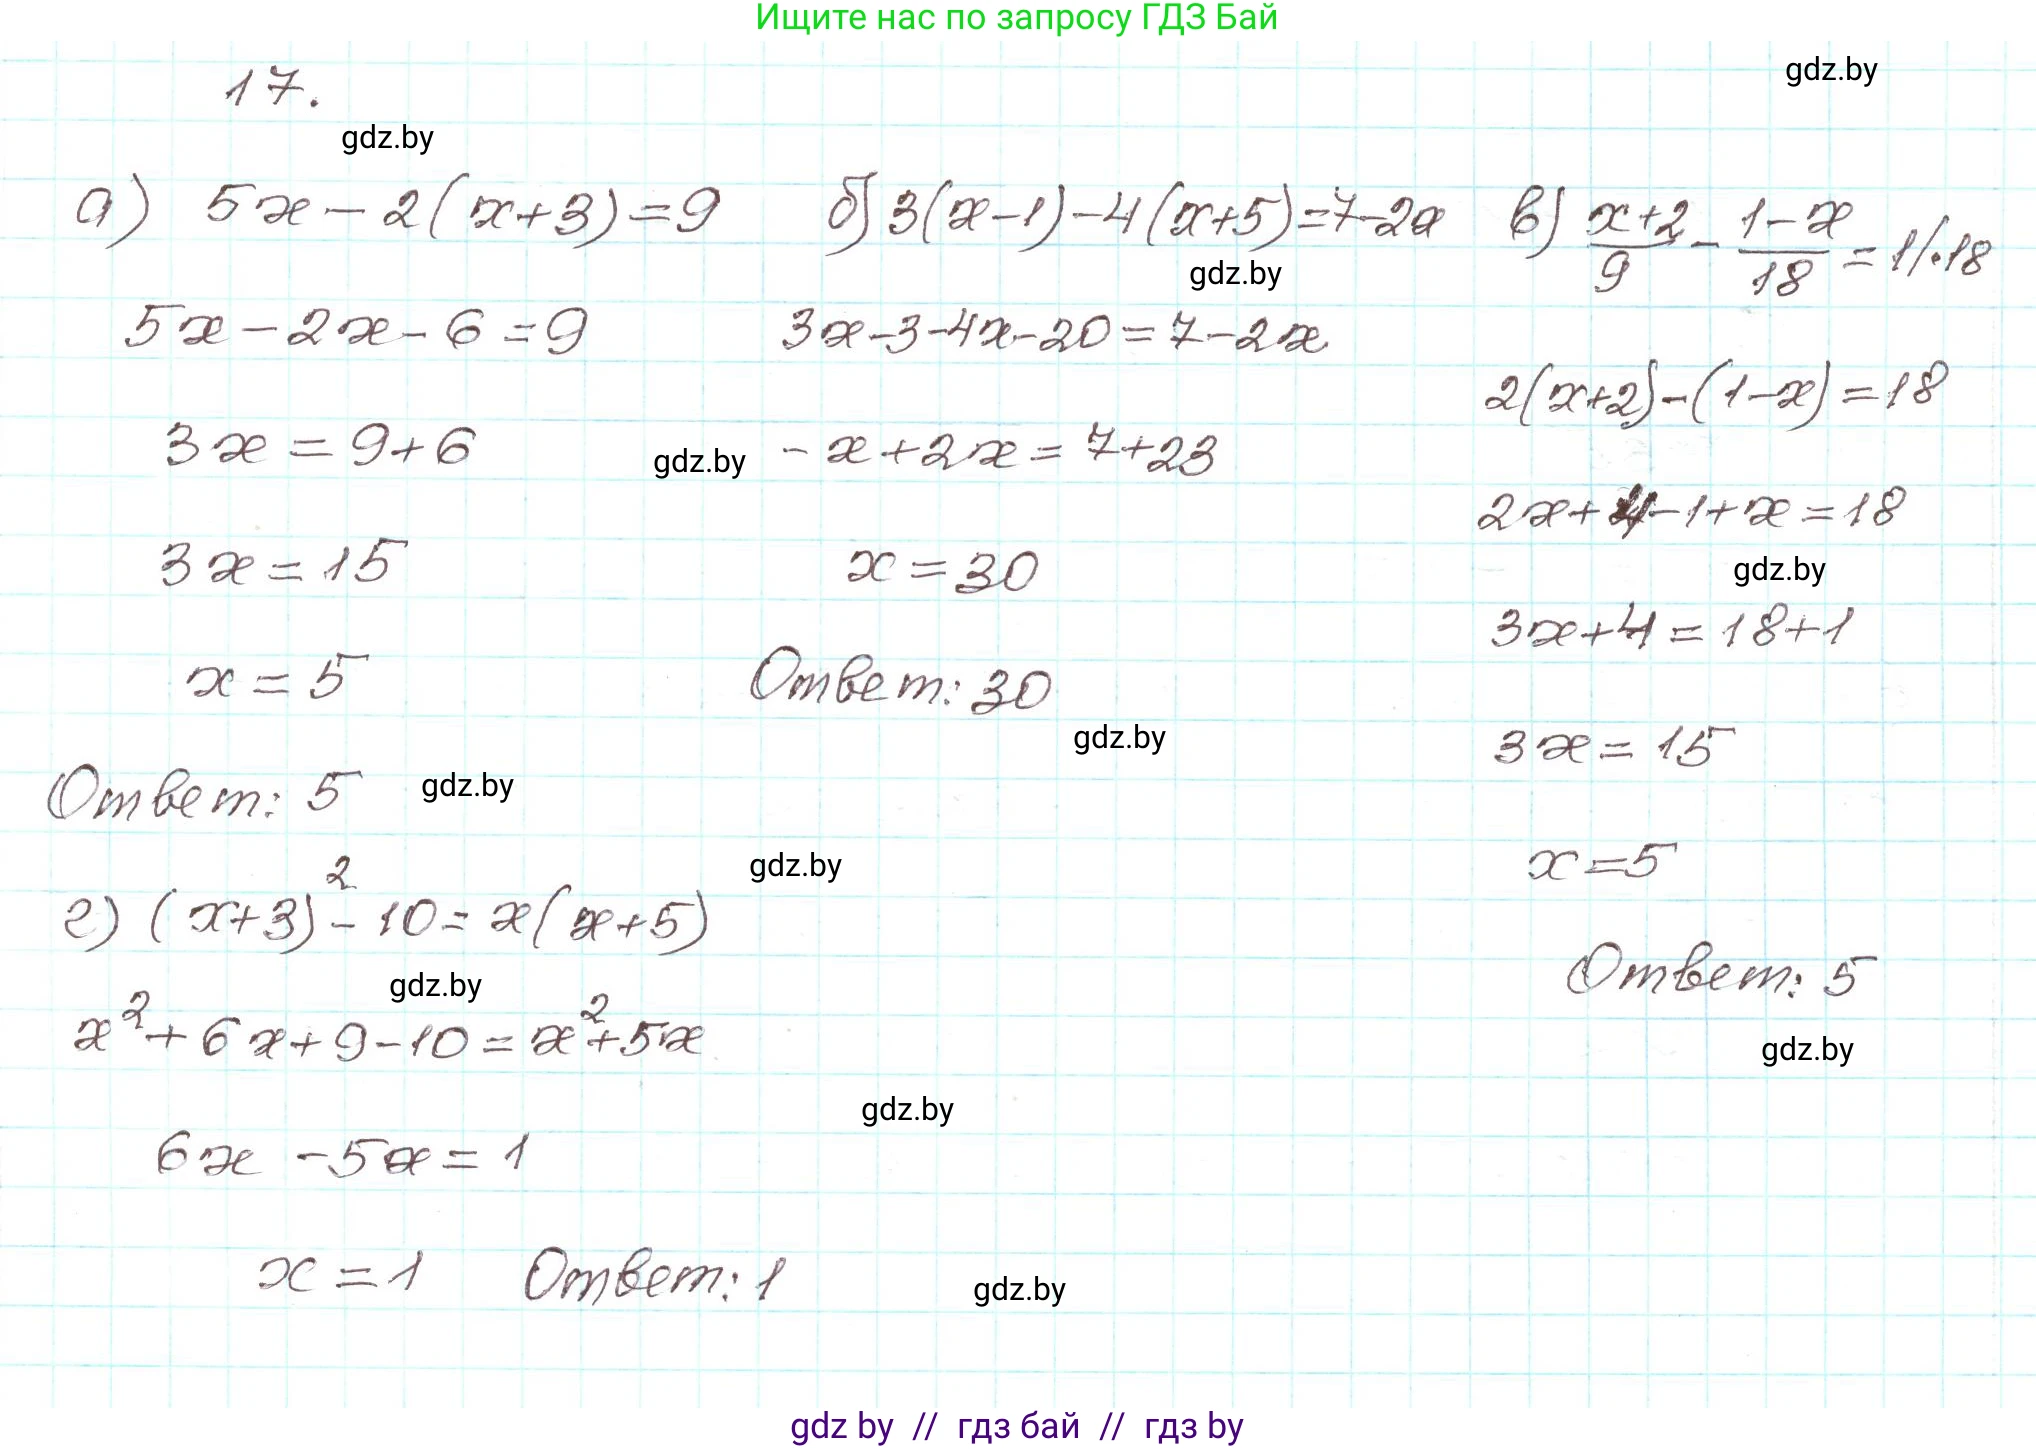 Ищите нас по запросу ГДЗ Бай
gdz.by
17.
gdz.by
а) 5x - 2(x+3) = 9
5x - 2x - 6 = 9
3x = 9 + 6
3x = 15
x = 5
Ответ: 5
gdz.by
б) 3(x-1) - 4(x+5) = 7 - 2x
gdz.by
3x - 3 - 4x - 20 = 7 - 2x
gdz.by
-x + 2x = 7 + 23
x = 30
Ответ: 30
gdz.by
в) \frac{x+2}{9} - \frac{1-x}{18} = 1 |·18
2(x+2) - (1-x) = 18
2x + 4 - 1 + x = 18
gdz.by
3x + 4 = 18 + 1
3x = 15
x = 5
Ответ: 5
gdz.by
gdz.by
г) (x+3)² - 10 = x(x+5)
gdz.by
x² + 6x + 9 - 10 = x² + 5x
gdz.by
6x - 5x = 1
x = 1 Ответ: 1
gdz.by
gdz by // гдз бай // гдз by